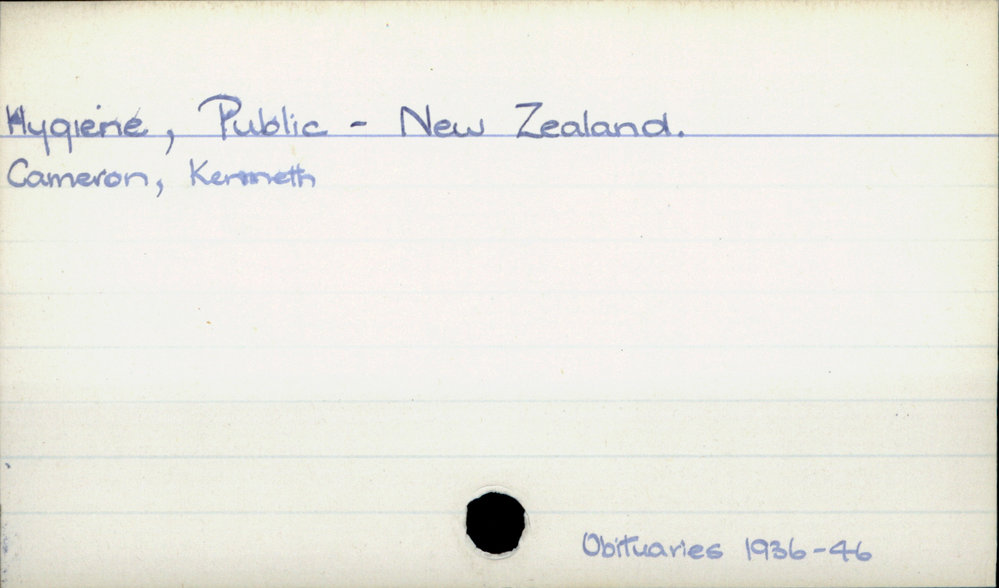 Hygiene, Public - New Zealand.
Cameron, Kenneth
Obituaries 1936-46